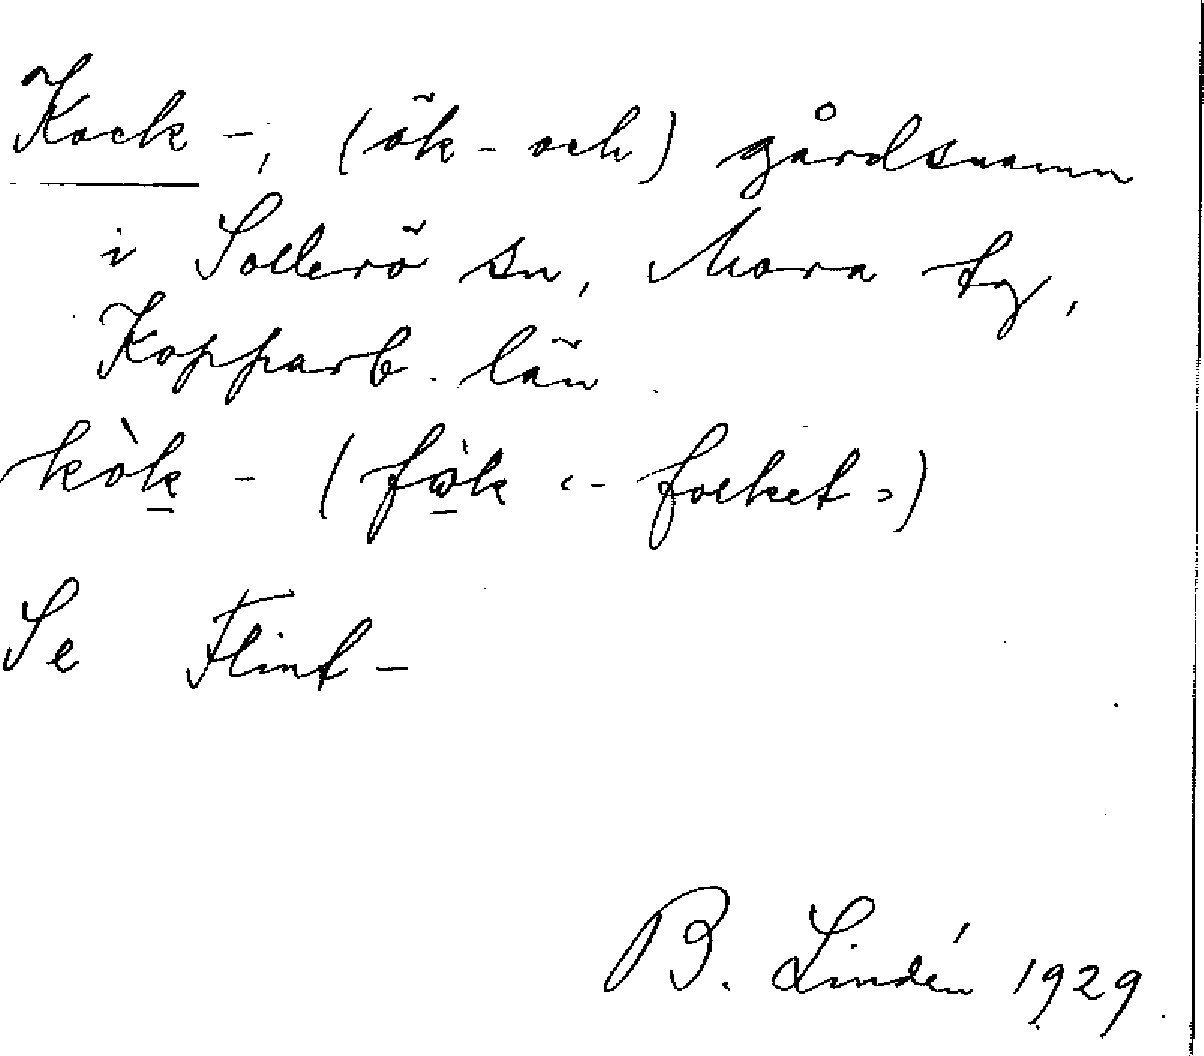 Kock-, (ök- och) gårdsnamn
i Sollerö sn, Mora tg,
Kopparb. län.
kòk - (fòk «- folket»)
Se Flint-
B. Lindén 1929